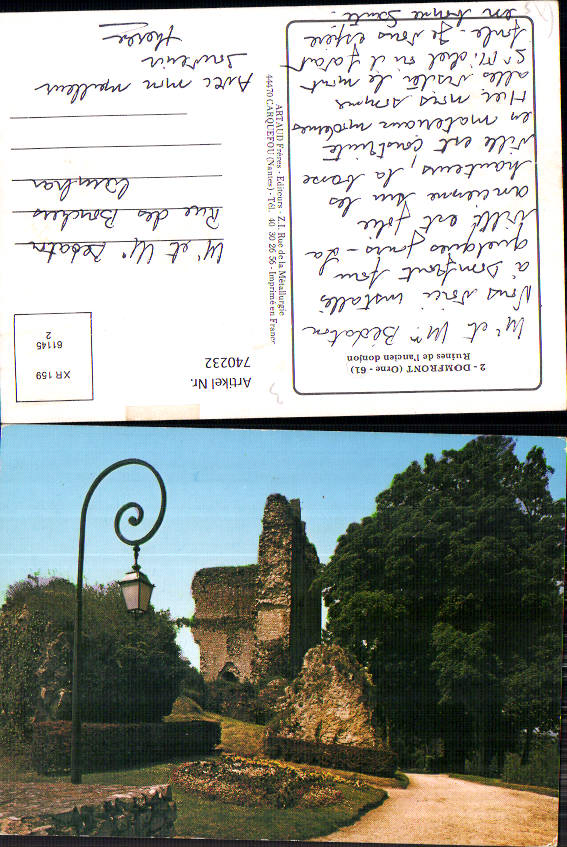 2 - DOMFRONT (Orne - 61)
Ruines de l'ancien donjon
Mr et Mme Bédaton
Nous voici installés
à Domfront pour
quelques jours - La
ville est jolie
ancienne sur les
hauteurs, la basse
ville est construite
en matériaux modernes
Hier nous sommes
allés visiter le mont
St Michel où il faisait
Je vous espère
en bonne Santé.
ARTAUD Frères - Editeurs - Z.I. Rue de la Métallurgie
44470 CARQUEFOU (Nantes) - Tél. 40 30 26 56 - Imprimé en France
Artikel Nr.
740232
XR 159
61145
2
Mr et Me Bédaton
Rue des
Avec mon meilleur
souvenir
Thérèse
3